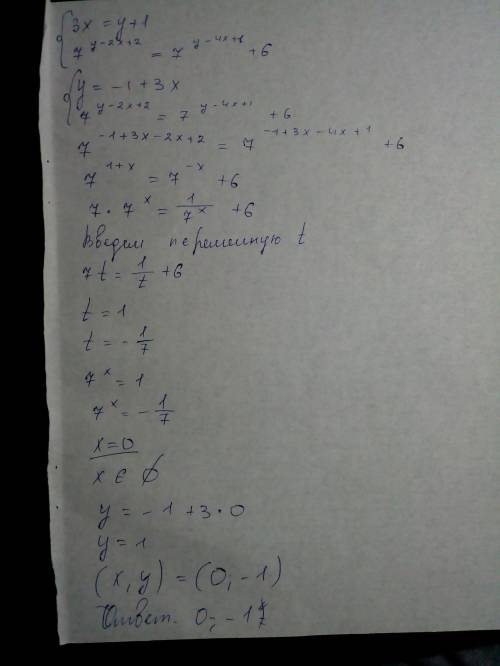 { 3x = y+1
7^{y-2x+2} = 7^{y-4x+1} + 6
{ y = -1 + 3x
7^{y-2x+2} = 7^{y-4x+1} + 6
7^{-1+3x-2x+2} = 7^{-1+3x-4x+1} + 6
7^{1+x} = 7^{-x} + 6
7 · 7^x = \frac{1}{7^x} + 6
Введем переменную t
7t = \frac{1}{t} + 6
t = 1
t = -\frac{1}{7}
7^x = 1
7^x = -\frac{1}{7}
x = 0
x ∈ ∅
y = -1 + 3 · 0
y = 1
(x, y) = (0; -1)
Ответ. 0; -1